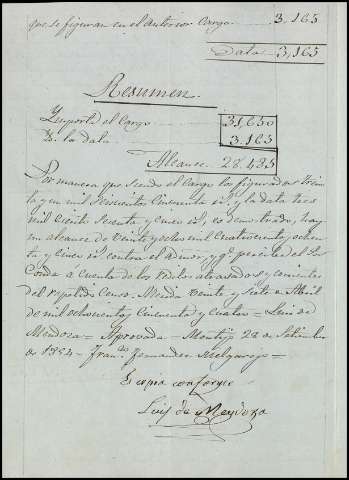 que se figuran en el anterior Cargo 3,165
Data 3,165
Resumen.
Ymporta el Cargo 31,650
Yd. la data 3,165
Alcance 28,485
Por manera que siendo el Cargo los figurados trein
ta y un mil seiscientos cincuenta y la data tres
mil ciento sesenta y cinco demostrado, hay
un alcance de veinte y ocho mil cuatrocientos ochen
ta y cinco contra el
Conde a cuenta de los reditos atrasados y corrientes
del repetido Censo. Merida veinte y siete de Abril
de mil ochocientos cincuenta y cuatro = Luis de
Mendoza = Aprovada = Montijo 28 de Setiembre
de 1854 = Franco. Fernandez Melgarejo =
Es copia conforme
Luis de Mendoza